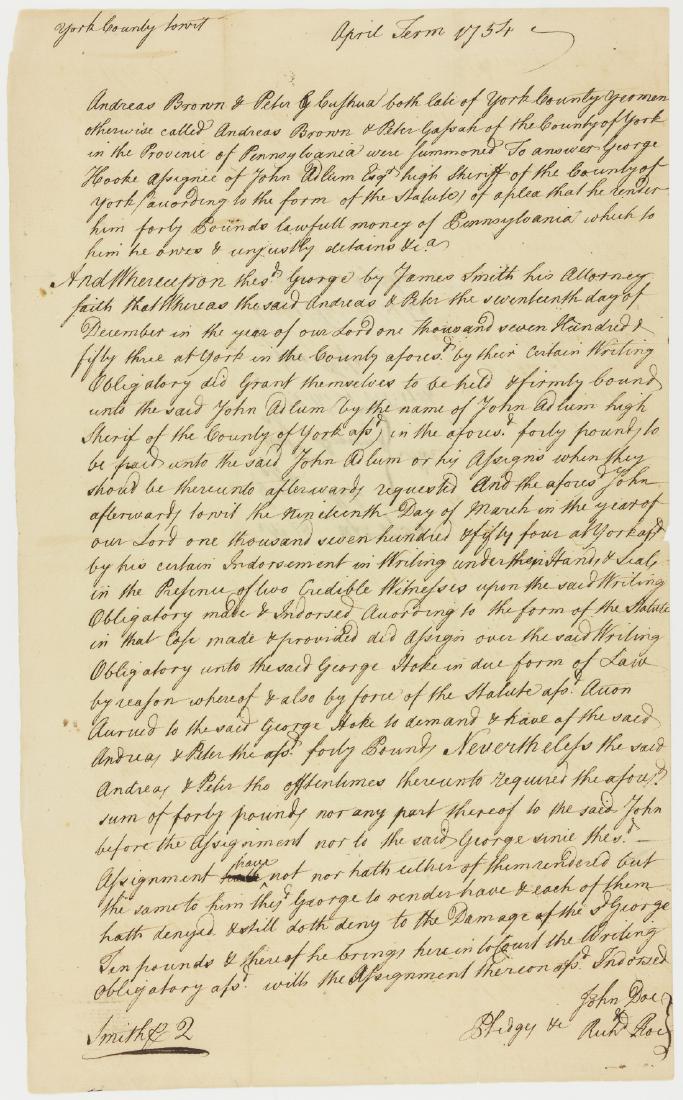 York County towit April Term 1754
Andreas Brown & Peter G Cushua both late of York County Yeomen
otherwise called Andreas Brown & Peter Gassah of the County of York
in the Provinie of Pennsylvania were summoned To answer George
Hooke assignee of John Adlum Esqr high Sheriff of the County of
York (according to the form of the Statute) of a plea that he render
him forty Pounds lawfull money of Pennsylvania which to
him he owes & unjustly detains &ca
And Whereupon the sd George by James Smith his Attorney
saith that Whereas the said Andreas & Peter the seventeenth day of
December in the year of our Lord one thousand seven Hundred &
fifty three at York in the County aforesd by their Certain Writing
Obligatory did Grant themselves to be held & firmly bound
unto the said John Adlum by the name of John Adlum high
Sherif of the County of York afsd in the aforesd forty pounds to
be paid unto the said John Adlum or his Assigns when they
shoud be thereunto afterwards requested And the aforesd John
afterwards towit the Nineteenth Day of March in the year of
our Lord one thousand seven hundred & fifty four at York afsd
by his certain Indorsement in Writing under their Hands & Seals
in the Presence of two Credible Witnesses upon the said Writing
Obligatory made & Indorsed According to the form of the Statute
in that Case made & provided did Assign over the said Writing
Obligatory unto the said George Hoke in due form of Law
by reason whereof & also by force of the Statute afsd Action
Acrued to the said George Hoke to demand & have of the said
Andreas & Peter the afsd forty Pounds Nevertheless the said
Andreas & Peter tho oftentimes thereunto required the aforesd
sum of forty pounds nor any part thereof to the said John
before the Assignment nor to the said George sinie the sd
Assignment have not nor hath either of them rendered but
the same to him the sd George to render have & each of them
hath denyed & still doth deny to the Damage of the sd George
Ten pounds & thereof he brings here into Court the Writing
Obligatory afsd with the Assignment thereon afsd Indorsed
John Doe
Smith 2 Pledges &c & Richd Roe